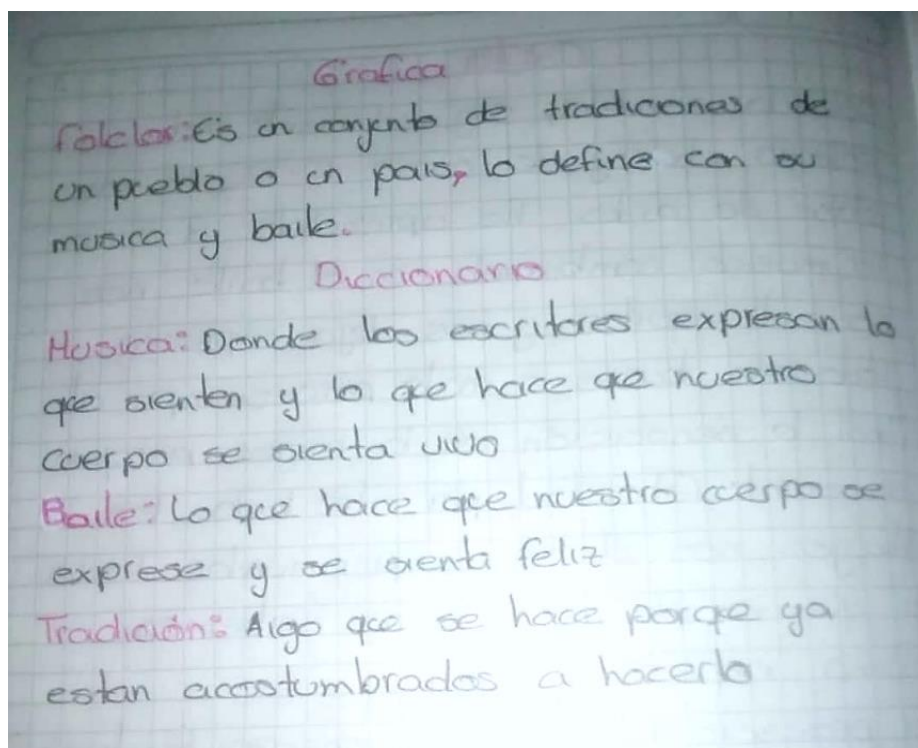 Grafica
Folclor: Es un conjunto de tradiciones de
un pueblo o un pais, lo define con su
musica y baile.
Diccionario
Musica: Donde los escritores expresan lo
que sienten y lo que hace que nuestro
cuerpo se sienta vivo
Baile: Lo que hace que nuestro cuerpo se
exprese y se sienta feliz
Tradición: Algo que se hace porque ya
estan acostumbrados a hacerlo